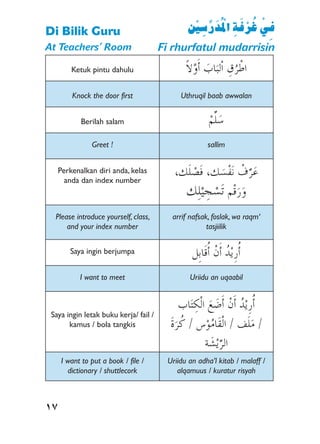 Di Bilik Guru
فِيْ غُرْفَةِ الْمُدَرِّسِيْنَ
At Teachers' Room
Fi rhurfatul mudarrisin
Ketuk pintu dahulu
اُطْرُقِ الْبَابَ أَوَّلاً
Knock the door first
Uthruqil baab awwalan
Berilah salam
سَلِّمْ
Greet !
sallim
Perkenalkan diri anda, kelas
anda dan index number
عَرِّفْ نَفْسَكَ، فَصْلَكَ،
وَرَقْمَ تَسْجِيْلِكَ
Please introduce yourself, class,
and your index number
arrif nafsak, foslak, wa raqm'
tasjiilik
Saya ingin berjumpa
أُرِيْدُ أَنْ أُقَابِلَ
I want to meet
Uriidu an uqaabil
Saya ingin letak buku kerja/ fail /
kamus / bola tangkis
أُرِيْدُ أَنْ أَضَعَ الْكِتَابَ
/ مَلَفَ / الْقَامُوْسَ / كُرَةَ
الرِّيْشَةِ
I want to put a book / file /
dictionary / shuttlecork
Uriidu an adha'l kitab / malaff /
alqamuus / kuratur risyah
١٧